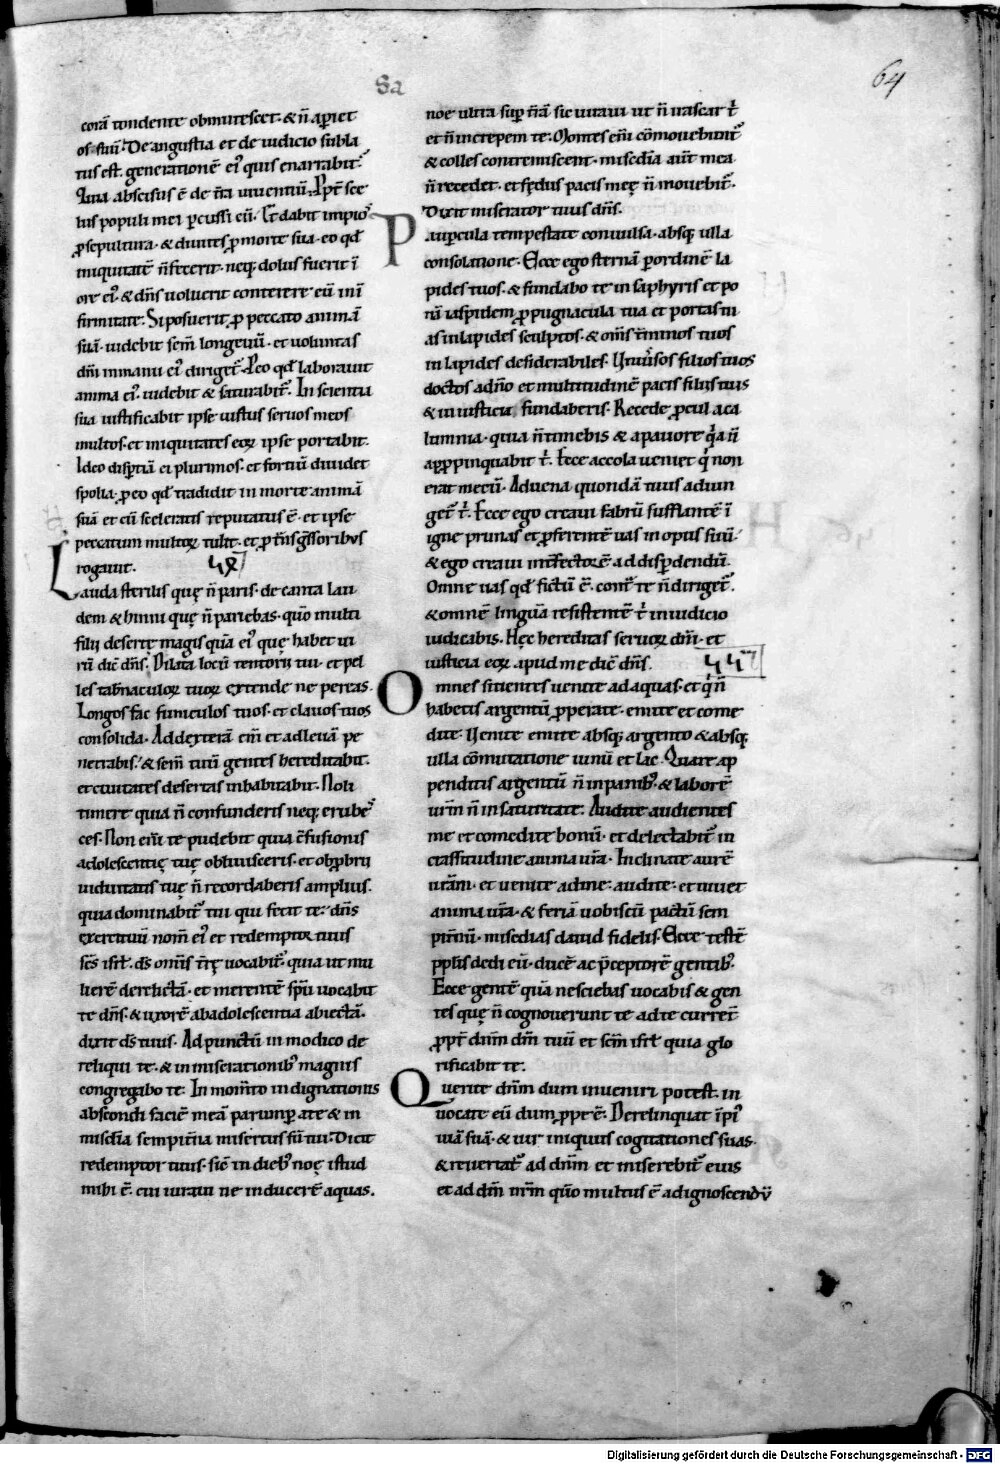 Sa
64
corā tondente obmutescet· & n̄ aperiet
os suū: De angustia et de iudicio subla
tus est· generationē eiꝰ quis enarrabit.
Quia abscisus ē de t̄ra uiuentiū. Ppt̄ sce
lus populi mei ꝑcussi eū· Et dabit impioꝭ
ꝓ sepultura· & diuites ꝓ morte sua· eo qđ
iniquitatē n̄ fecerit· neq; dolus fuerit ī
ore eiꝰ· & dn̄s uoluerit conterere eū in ī
firmitate: Si posuerit ꝓ peccato animā
suā· uidebit sem̄ longeuū· et uoluntas
dn̄i in manu eiꝰ diriget᷑. Pro eo qđ laborauit
anima eiꝰ· uidebit & saturabit᷑. In scientia
sua iustificabit ipse iustus seruos meos
multos· et iniquitates eoꝝ ipse portabit.
Ideo disꝑtiā ei plurimos· et fortiū diuidet
spolia· ꝓ eo qđ tradidit in morte animā
suā et cū sceleratis reputatus ē· et ipse
peccatum multoꝝ tulit· et ꝓ t̄nsg̃ssoribus
rogauit.
Lauda sterilis quę n̄ paris· decanta lau
dem & hinni quę n̄ pariebas· qm̄o multi
filii desertę magis quā eiꝰ quę habet ui
rū dic̄ dn̄s. Dilata locū tentorii tui· et pel
les tab̄naculoꝝ tuoꝝ extende ne pereas.
Longos fac funiculos tuos· et clauos tuos
consolida· Ad dexterā em̄ et ad leuā pe
netrabis: & sem̄ tuū gentes hereditabit·
et ciuitates desertas inhabitabit· Noli
timere quia n̄ confunderis neq; erube
sces· Non em̄ te pudebit quia c̄fusionis
adolescentię tuę obliuisceris· et obꝓbrii
uiduitatis tuę n̄ recordaberis amplius.
quia dominabit᷑ tui qui fecit te: dn̄s
exercituū nom̄ eiꝰ et redemptor tuus
sc̄s isrł· d̄s om̄is t̄rę uocabit᷑· quia ut mu
lierē derelictā· et merentē sp̄u uocabit
te dn̄s· & uxorē ab adolescentia abiectā·
dixit d̄s tuus· Ad punctū in modico de
reliqui te· & in miserationibꝰ magnis
congregabo te· In mom̄to indignationis
abscondi faciē meā parumꝑ a te & in
misc̄dia sempit̄na misertus sū tui: Dixit
redemptor tuus· sic̄ in diebꝰ noę istud
mihi ē· cui iuraui ne inducerē aquas.
noe ultra suꝑ t̄rā sic iuraui ut n̄ irascar t̾
et n̄ increpem te: Montes em̄ cōmouebunt᷑
& colles contremiscent· misc̄dia aut̄ mea
n̄ recedet· et fędus pacis meę n̄ mouebit᷑·
Dixit miserator tuus dn̄s.
Paupercula tempestate conuulsa· absq; ulla
consolatione· Ecce ego sternā ꝑ ordinē la
pides tuos· & fundabo te in saphyris et po
nā iaspidem ꝓpugnacula tua et portas tu
as in lapides sculptos· & om̄s t̄minos tuos
in lapides desiderabiles· Uniu̾sos filios tuos
doctos a dn̄o et multitudinē pacis filiis tuis
& in iusticia fundaberis· Recede ꝓcul a ca
lumnia· quia n̄ timebis & a pauore qͥa n̄
apꝓpinquabit t̾· Ecce accola ueniet qͥ non
erat mecū· Aduena quondā tuus adiun
get᷑ t̾· Ecce ego creaui fabrū sufflantē ī
igne prunas et ꝓferentē uas in opus suū·
& ego creaui int̄fectorē ad disꝑdendū.
Omne uas qđ fictū ē· cont᷑ te n̄ diriget᷑.
& omnē linguā resistentē t̾ in iudicio
iudicabis· Hęc hereditas seruoꝝ dn̄i· et
iusticia eoꝝ apud me dic̄ dn̄s.
Omnes sitientes uenite ad aquas· et qͥ n̄
habetis argentū ꝓperate· emite et come
dite: Uenite emite absq; argento & absq;
ulla cōmutatione uinū et lac· Quare ap
penditis argentū n̄ in panibꝰ· & laborē
ur̄m n̄ in saturitate: Audite audientes
me et comedite bonū· et delectabit᷑ in
crassitudine anima ur̄a· Inclinate aurē
ur̄am· et uenite ad me: audite· et uiuet
anima ur̄a· & feriā uobiscū pactū sem
pit̄nū· misc̄dias dauid fidelis· Ecce testē
ppl̄is dedi eū· ducē ac p̄ceptorē gentibꝰ.
Ecce gentē quā nesciebas uocabis & gen
tes quę n̄ cognouerunt te ad te current
ꝓpt̄ dn̄m dm̄ tuū et sc̄m isrł quia glo
rificabit te.
Querite dn̄m dum inueniri potest· in
uocate eū dum ꝓpe ē· Derelinquat īpiꝰ
uiā suā· & uir iniquus cogitationes suas·
& reuertat᷑ ad dn̄m et miserebit᷑ eius
et ad dm̄ nr̄m qm̄o multus ē ad ignoscendū
Digitalisierung gefördert durch die Deutsche Forschungsgemeinschaft - DFG